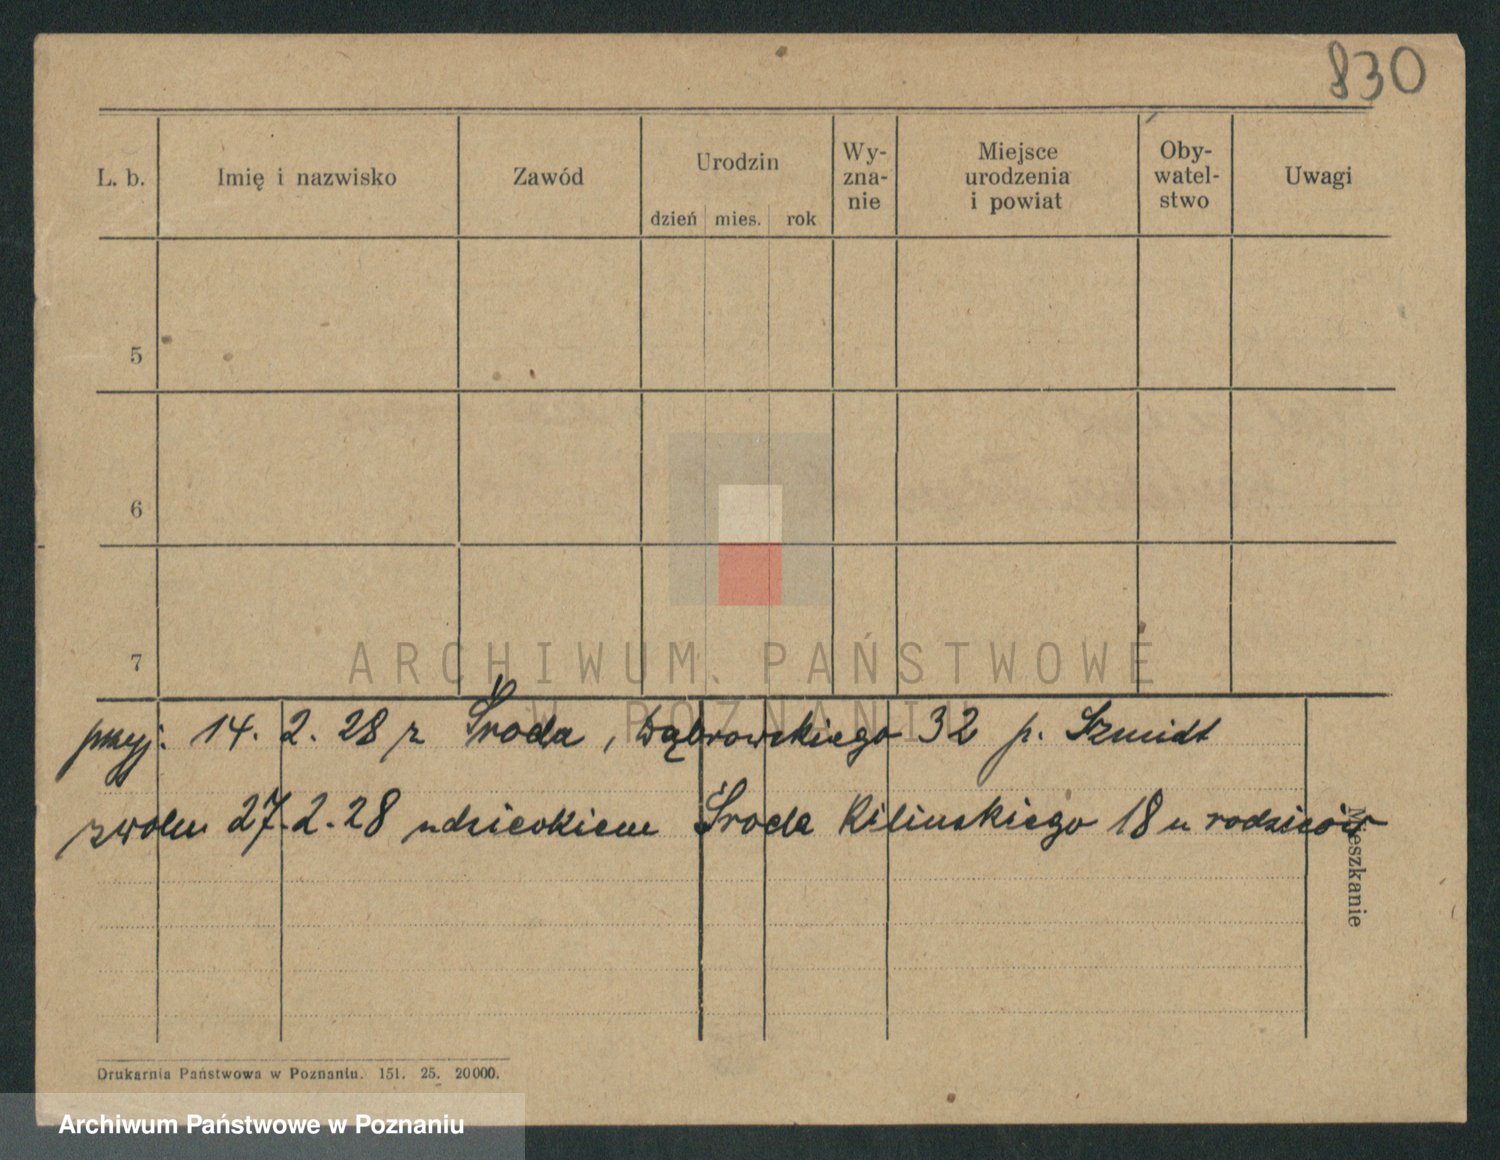 830
L. b. Imię i nazwisko Zawód Urodzin Wy- zna- nie Miejsce urodzenia i powiat Oby- watel- stwo Uwagi
dzień mies. rok
5
6
7
ARCHIWUM PAŃSTWOWE
W POZNANIU
przyj. 14. 2. 28 z Środa, Dąbrowskiego 32 p. Szmidt
27. 2. 28 Środa Kilinskiego 18 u rodziców
Mieszkanie
Drukarnia Państwowa w Poznaniu. 151. 25. 20000.
Archiwum Państwowe w Poznaniu